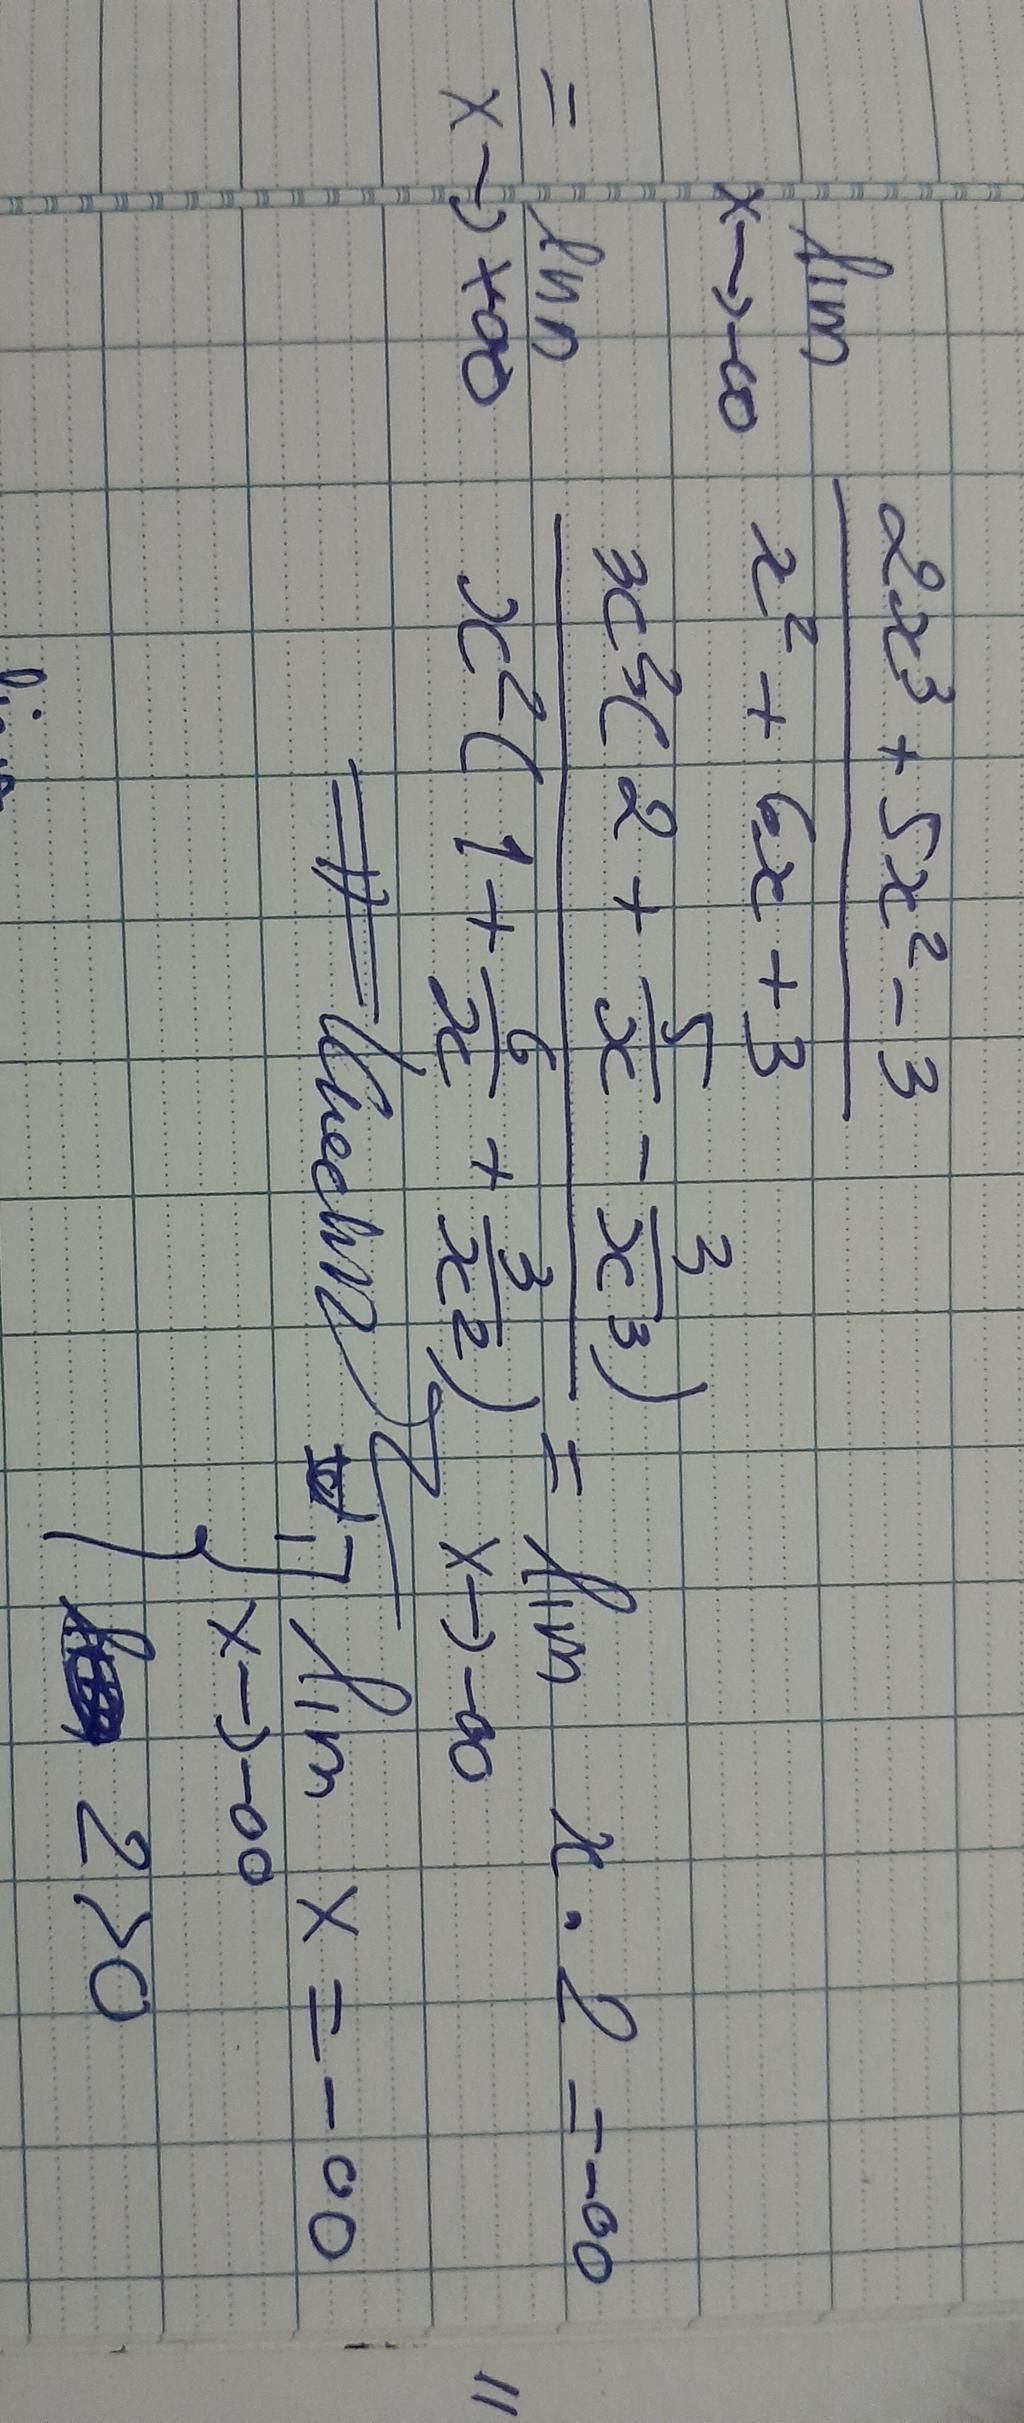 lim x→-∞ (2x³ + 5x² - 3) / (x² + 6x + 3)
= lim x→+∞ x³(2 + 5/x - 3/x³) / x²(1 + 6/x + 3/x²) = lim x→-∞ x . 2 = -∞
lim x→-∞ x = -∞
2>0